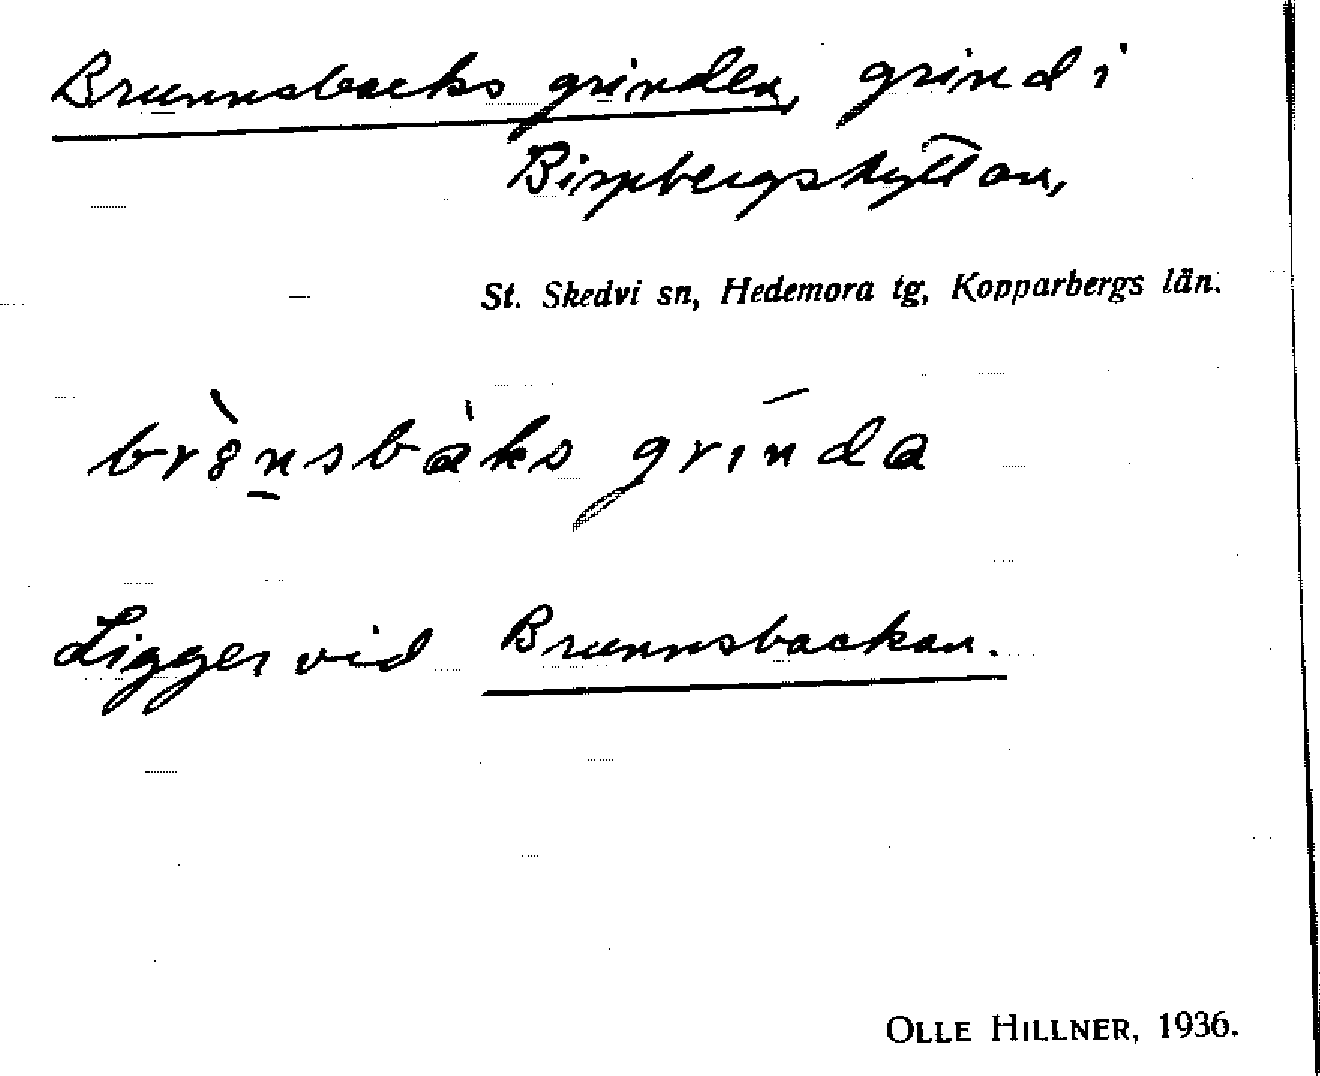 Brunnsbacks grinden, grind i
Bispbergshyttan,
St. Skedvi sn, Hedemora tg, Kopparbergs län.
br8̀nsbàks grīnda
Ligger vid Brunnsbackan.
OLLE HILLNER, 1936.